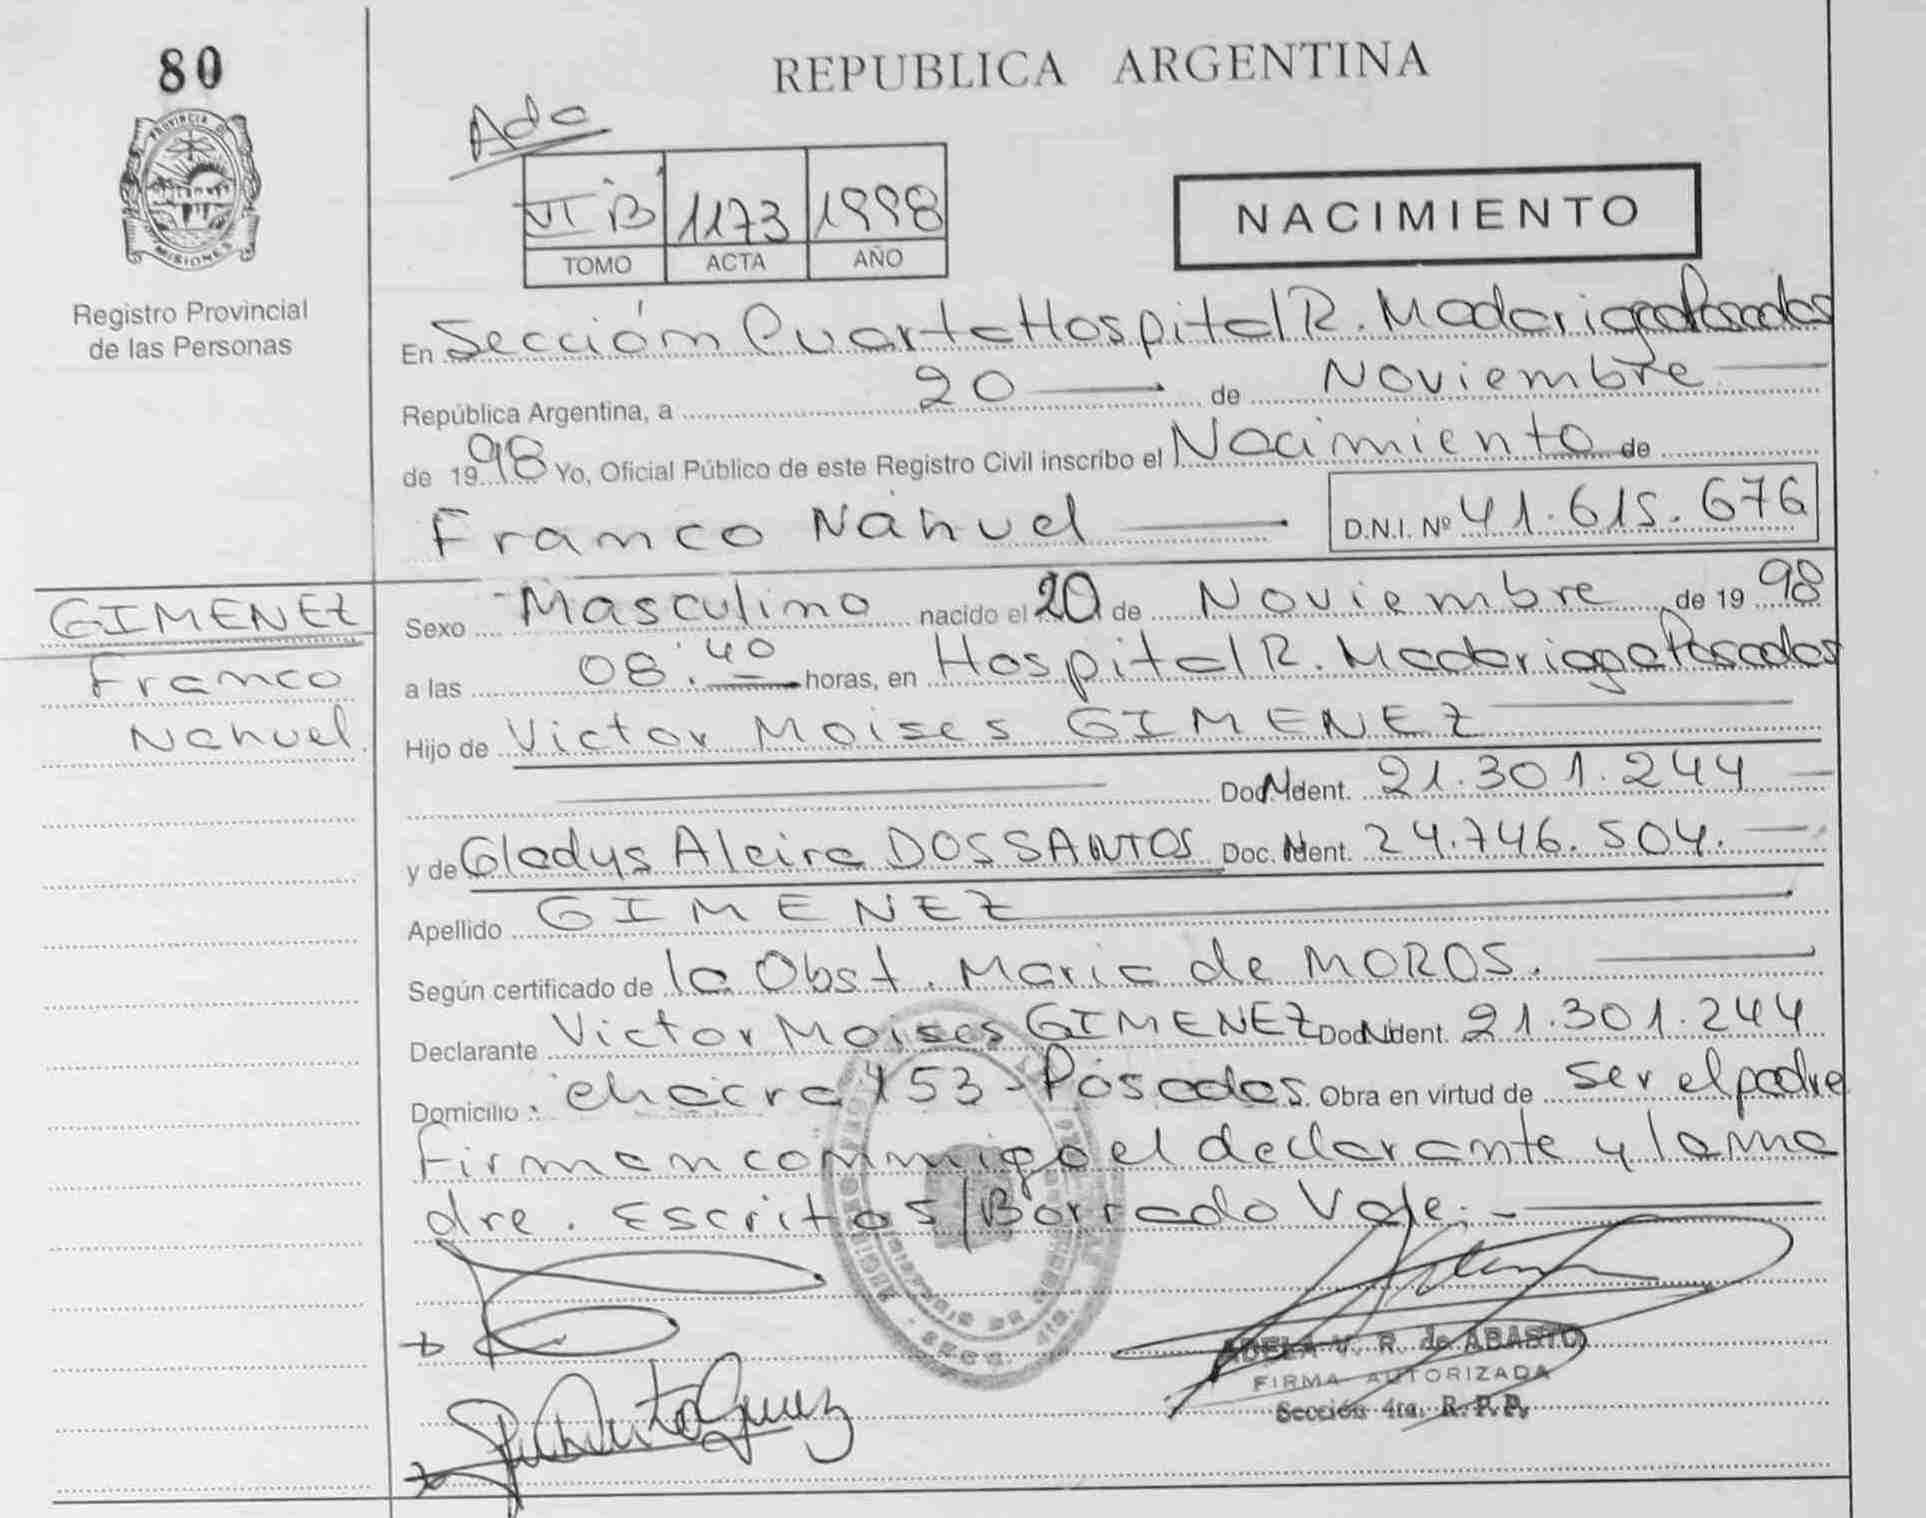 80
REPUBLICA ARGENTINA
PROVINCIA DE
MISIONES
Registro Provincial
de las Personas
Ado
VI "B" 1173 1998
TOMO ACTA AÑO
NACIMIENTO
En Sección Cuarta Hospital R. Madariaga Posadas
República Argentina, a 20 de Noviembre
de 1998 Yo, Oficial Público de este Registro Civil inscribo el Nacimiento de
Franco Nahuel D.N.I. Nº 41.615.676
GIMENEZ
Franco
Nahuel.
Sexo Masculino nacido el 20 de Noviembre de 1998
a las 08:40 horas, en Hospital R. Madariaga Posadas
Hijo de Victor Moises GIMENEZ
Doc. Ident. 21.301.244
y de Gladys Alcira DOS SANTOS Doc. Ident. 24.746.504.
Apellido GIMENEZ
Según certificado de la Obst. Maria de MOROS.
Declarante Victor Moises GIMENEZ Doc. Ident. 21.301.244
Domicilio: chacra 153 - Posadas. Obra en virtud de ser el padre
firman conmigo el declarante y la ma
dre. Escritos/Borrado Vale. -
ADELA V. R. de ABASTO
FIRMA AUTORIZADA
Sección 4ta. R. P. P.